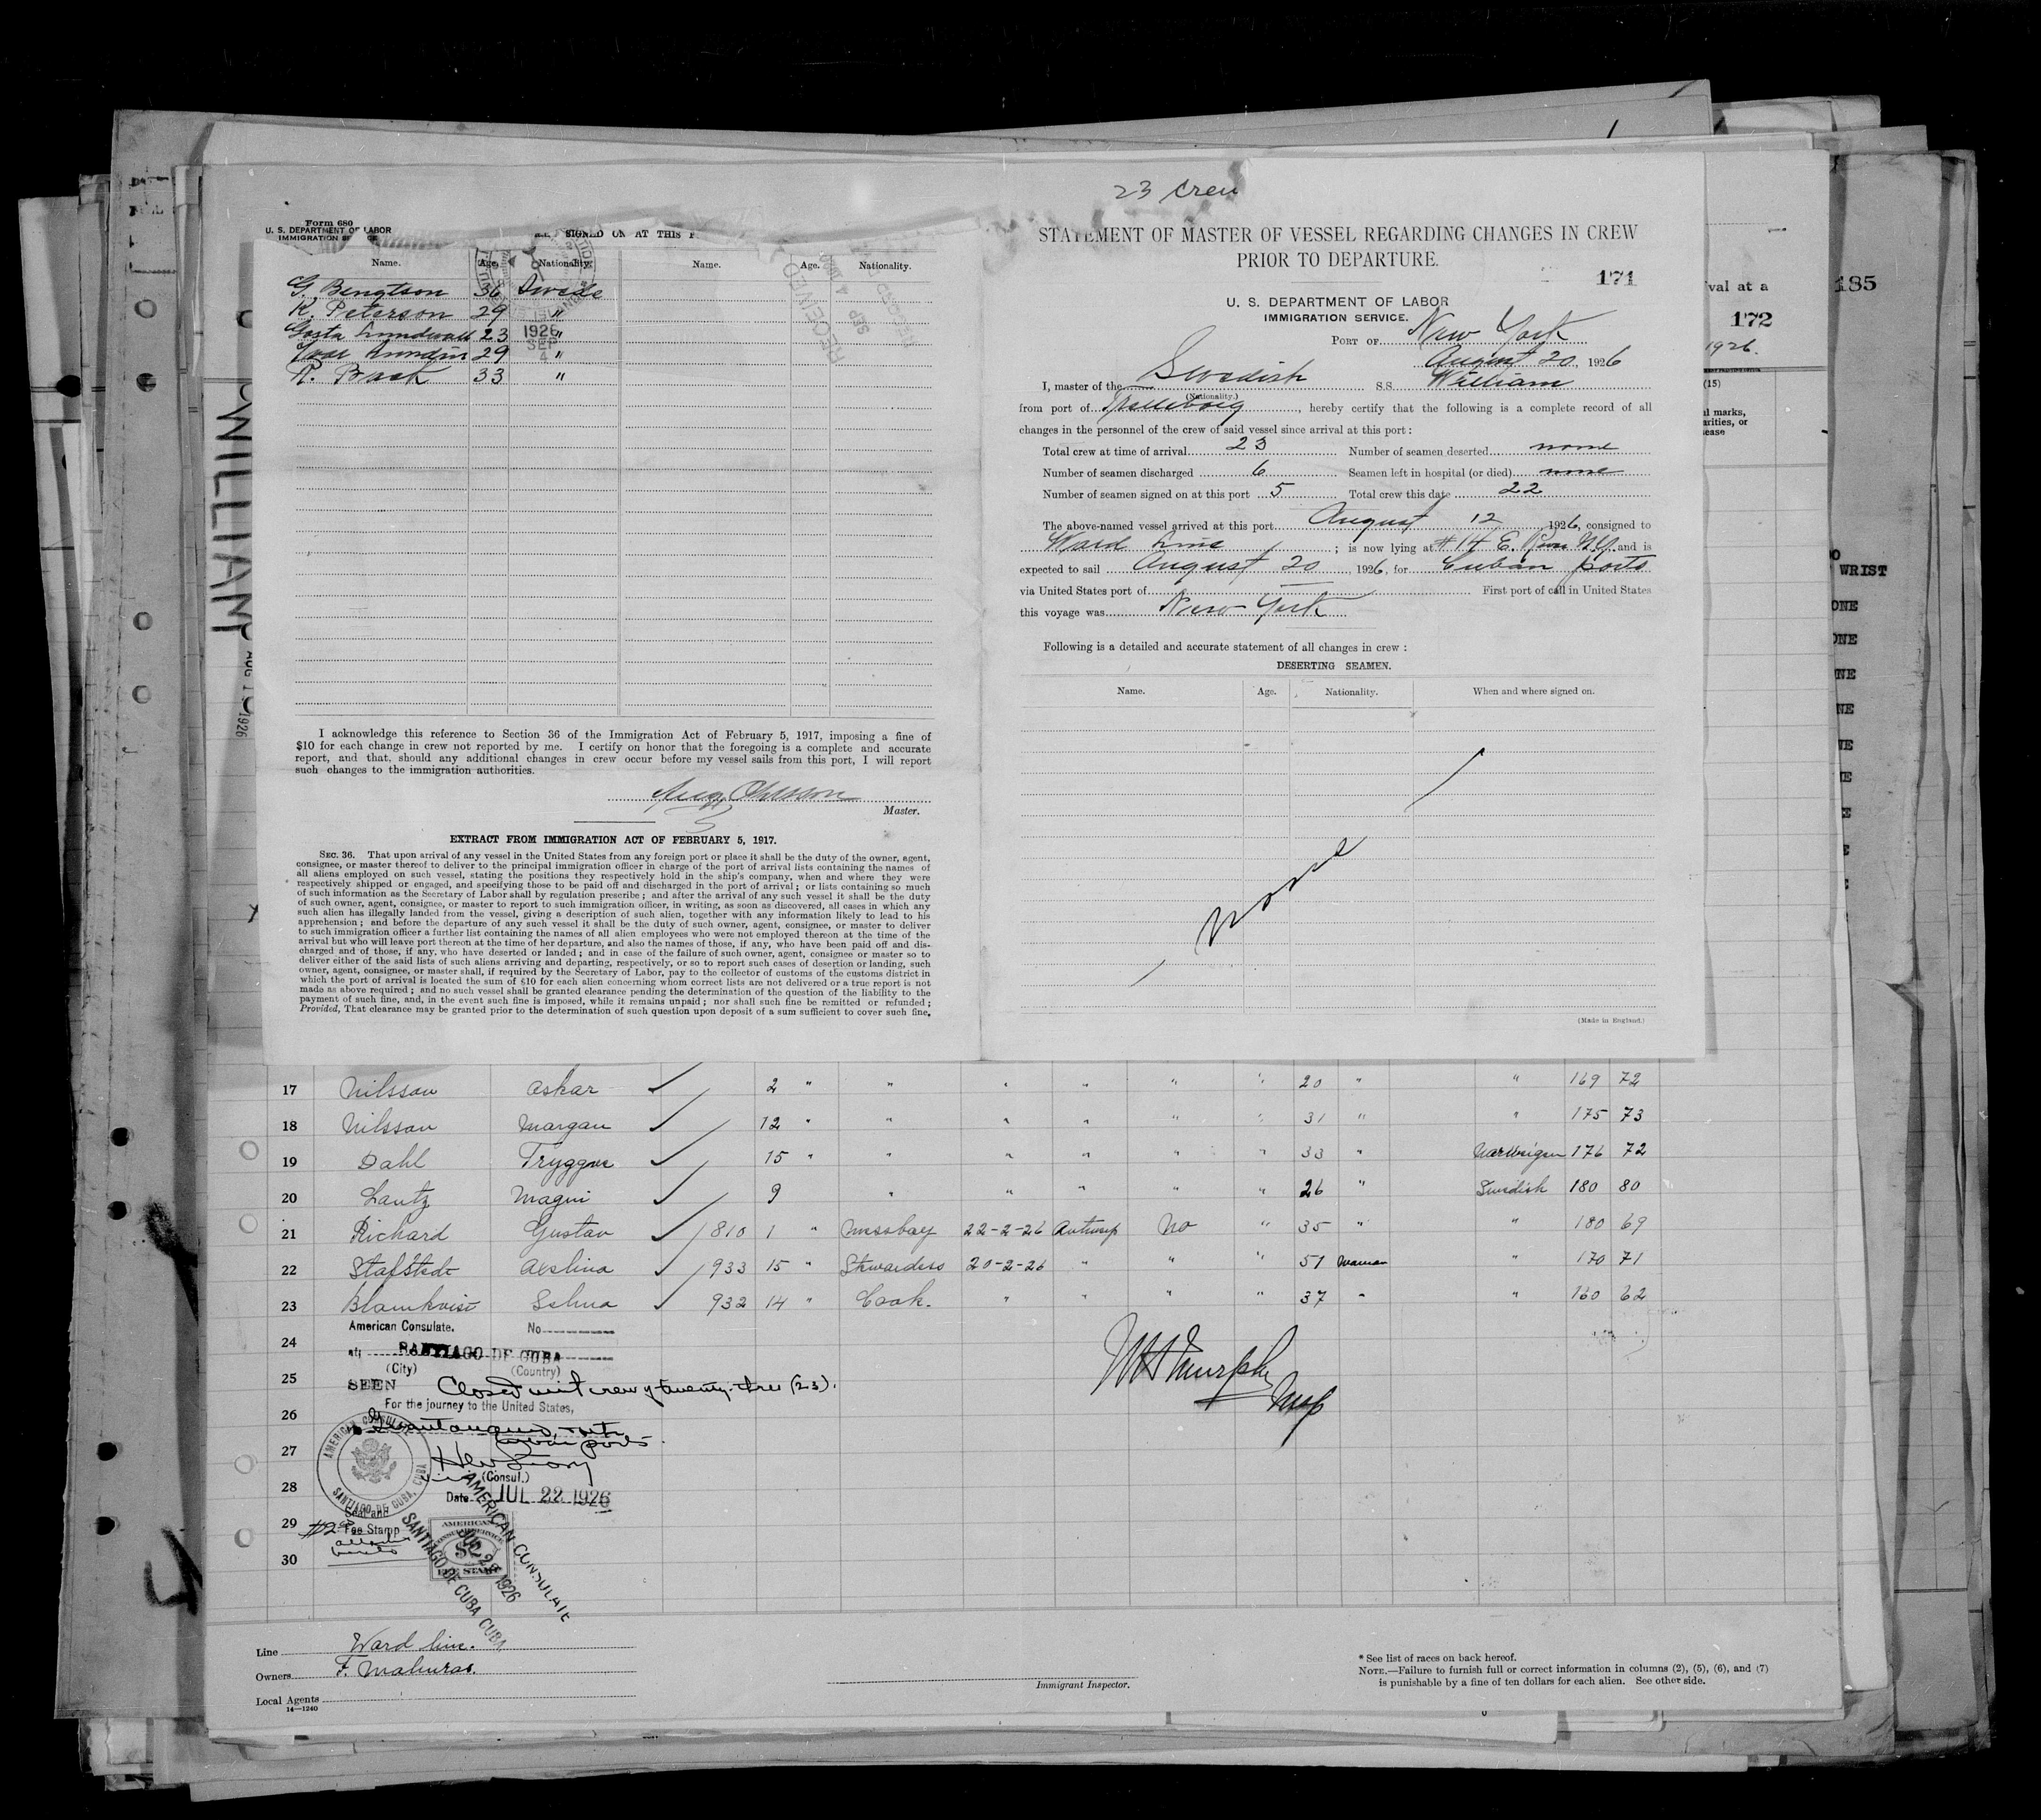 23 crew
Form 680
U. S. DEPARTMENT OF LABOR
IMMIGRATION
SIGNED ON AT THIS
Name. Age. Nationality. Name. Age. Nationality.
G. Bengtson 36 Swede
K. Peterson 29 "
Gosta Lundwall 23 "
Ivar Lundin 29 "
R. Back 33 "
1926
SEP
4
RECEIVED
SEP
I acknowledge this reference to Section 36 of the Immigration Act of February 5, 1917, imposing a fine of
$10 for each change in crew not reported by me. I certify on honor that the foregoing is a complete and accurate
report, and that, should any additional changes in crew occur before my vessel sails from this port, I will report
such changes to the immigration authorities.
Aug. Ohlsson
Master.
EXTRACT FROM IMMIGRATION ACT OF FEBRUARY 5, 1917.
SEC. 36. That upon arrival of any vessel in the United States from any foreign port or place it shall be the duty of the owner, agent,
consignee, or master thereof to deliver to the principal immigration officer in charge of the port of arrival lists containing the names of
all aliens employed on such vessel, stating the positions they respectively hold in the ship's company, when and where they were
respectively shipped or engaged, and specifying those to be paid off and discharged in the port of arrival; or lists containing so much
of such information as the Secretary of Labor shall by regulation prescribe; and after the arrival of any such vessel it shall be the duty
of such owner, agent, consignee, or master to report to such immigration officer, in writing, as soon as discovered, all cases in which any
such alien has illegally landed from the vessel, giving a description of such alien, together with any information likely to lead to his
apprehension; and before the departure of any such vessel it shall be the duty of such owner, agent, consignee, or master to deliver
to such immigration officer a further list containing the names of all alien employees who were not employed thereon at the time of the
arrival but who will leave port thereon at the time of her departure, and also the names of those, if any, who have been paid off and dis-
charged and of those, if any, who have deserted or landed; and in case of the failure of such owner, agent, consignee or master so to
deliver either of the said lists of such aliens arriving and departing, respectively, or so to report such cases of desertion or landing, such
owner, agent, consignee, or master shall, if required by the Secretary of Labor, pay to the collector of customs of the customs district in
which the port of arrival is located the sum of $10 for each alien concerning whom correct lists are not delivered or a true report is not
made as above required; and no such vessel shall be granted clearance pending the determination of the question of the liability to the
payment of such fine, and, in the event such fine is imposed, while it remains unpaid; nor shall such fine be remitted or refunded;
Provided, That clearance may be granted prior to the determination of such question upon deposit of a sum sufficient to cover such fine.
STATEMENT OF MASTER OF VESSEL REGARDING CHANGES IN CREW
PRIOR TO DEPARTURE.
171
U. S. DEPARTMENT OF LABOR
IMMIGRATION SERVICE.
PORT OF New York
August 20, 1926
I, master of the Swedish S.S. William
(Nationality.)
from port of Trelleborg, hereby certify that the following is a complete record of all
changes in the personnel of the crew of said vessel since arrival at this port:
Total crew at time of arrival 23 Number of seamen deserted none
Number of seamen discharged 6 Seamen left in hospital (or died) none
Number of seamen signed on at this port 5 Total crew this date 22
The above-named vessel arrived at this port August 12, 1926, consigned to
Ward Line; is now lying at #14 E. River N.Y. and is
expected to sail August 20, 1926, for Cuban ports
via United States port of First port of call in United States
this voyage was New York
Following is a detailed and accurate statement of all changes in crew:
DESERTING SEAMEN.
Name. Age. Nationality. When and where signed on.
none
(Made in England.)
val at a
172
1926.
(15)
l marks,
arities, or
ease
185
WRIST
ONE
WILLIAM
AUG 1926
17 Nilsson Oskar 2 " " " " " " 20 " " 169 72
18 Nilsson Margan 12 " " " " " " 31 " " 175 73
19 Dahl Tryggve 15 " " " " " " 33 " Norweigen 176 72
20 Lantz Magni 9 " " " " " 26 " Swedish 180 80
21 Richard Gustav 810 1 " Messboy 22-2-26 Antwerp No " 35 " " 180 69
22 Stafstedt Axelina 933 15 " Stewardess 20-2-26 " " " 51 Woman " 170 71
23 Blomkvist Selma 932 14 " Cook. " " " " 37 " " 160 62
24
25
26
27
28
29
30
American Consulate. No
at SANTIAGO DE CUBA
(City) (Country)
SEEN Closed with crew of twenty-three (23).
For the journey to the United States,
Cuban ports
(Consul.)
Date JUL 22 1926
AMERICAN CONSULATE
SANTIAGO DE CUBA, CUBA
Seal and
Fee Stamp
AMERICAN
CONSULAR SERVICE
$2
FEE STAMP
AMERICAN CONSULATE
JUL 22 1926
SANTIAGO DE CUBA CUBA
Murphy
Insp
Line Ward Line.
Owners F. Malmros.
Local Agents
14—1240
Immigrant Inspector.
* See list of races on back hereof.
NOTE.—Failure to furnish full or correct information in columns (2), (5), (6), and (7)
is punishable by a fine of ten dollars for each alien. See other side.